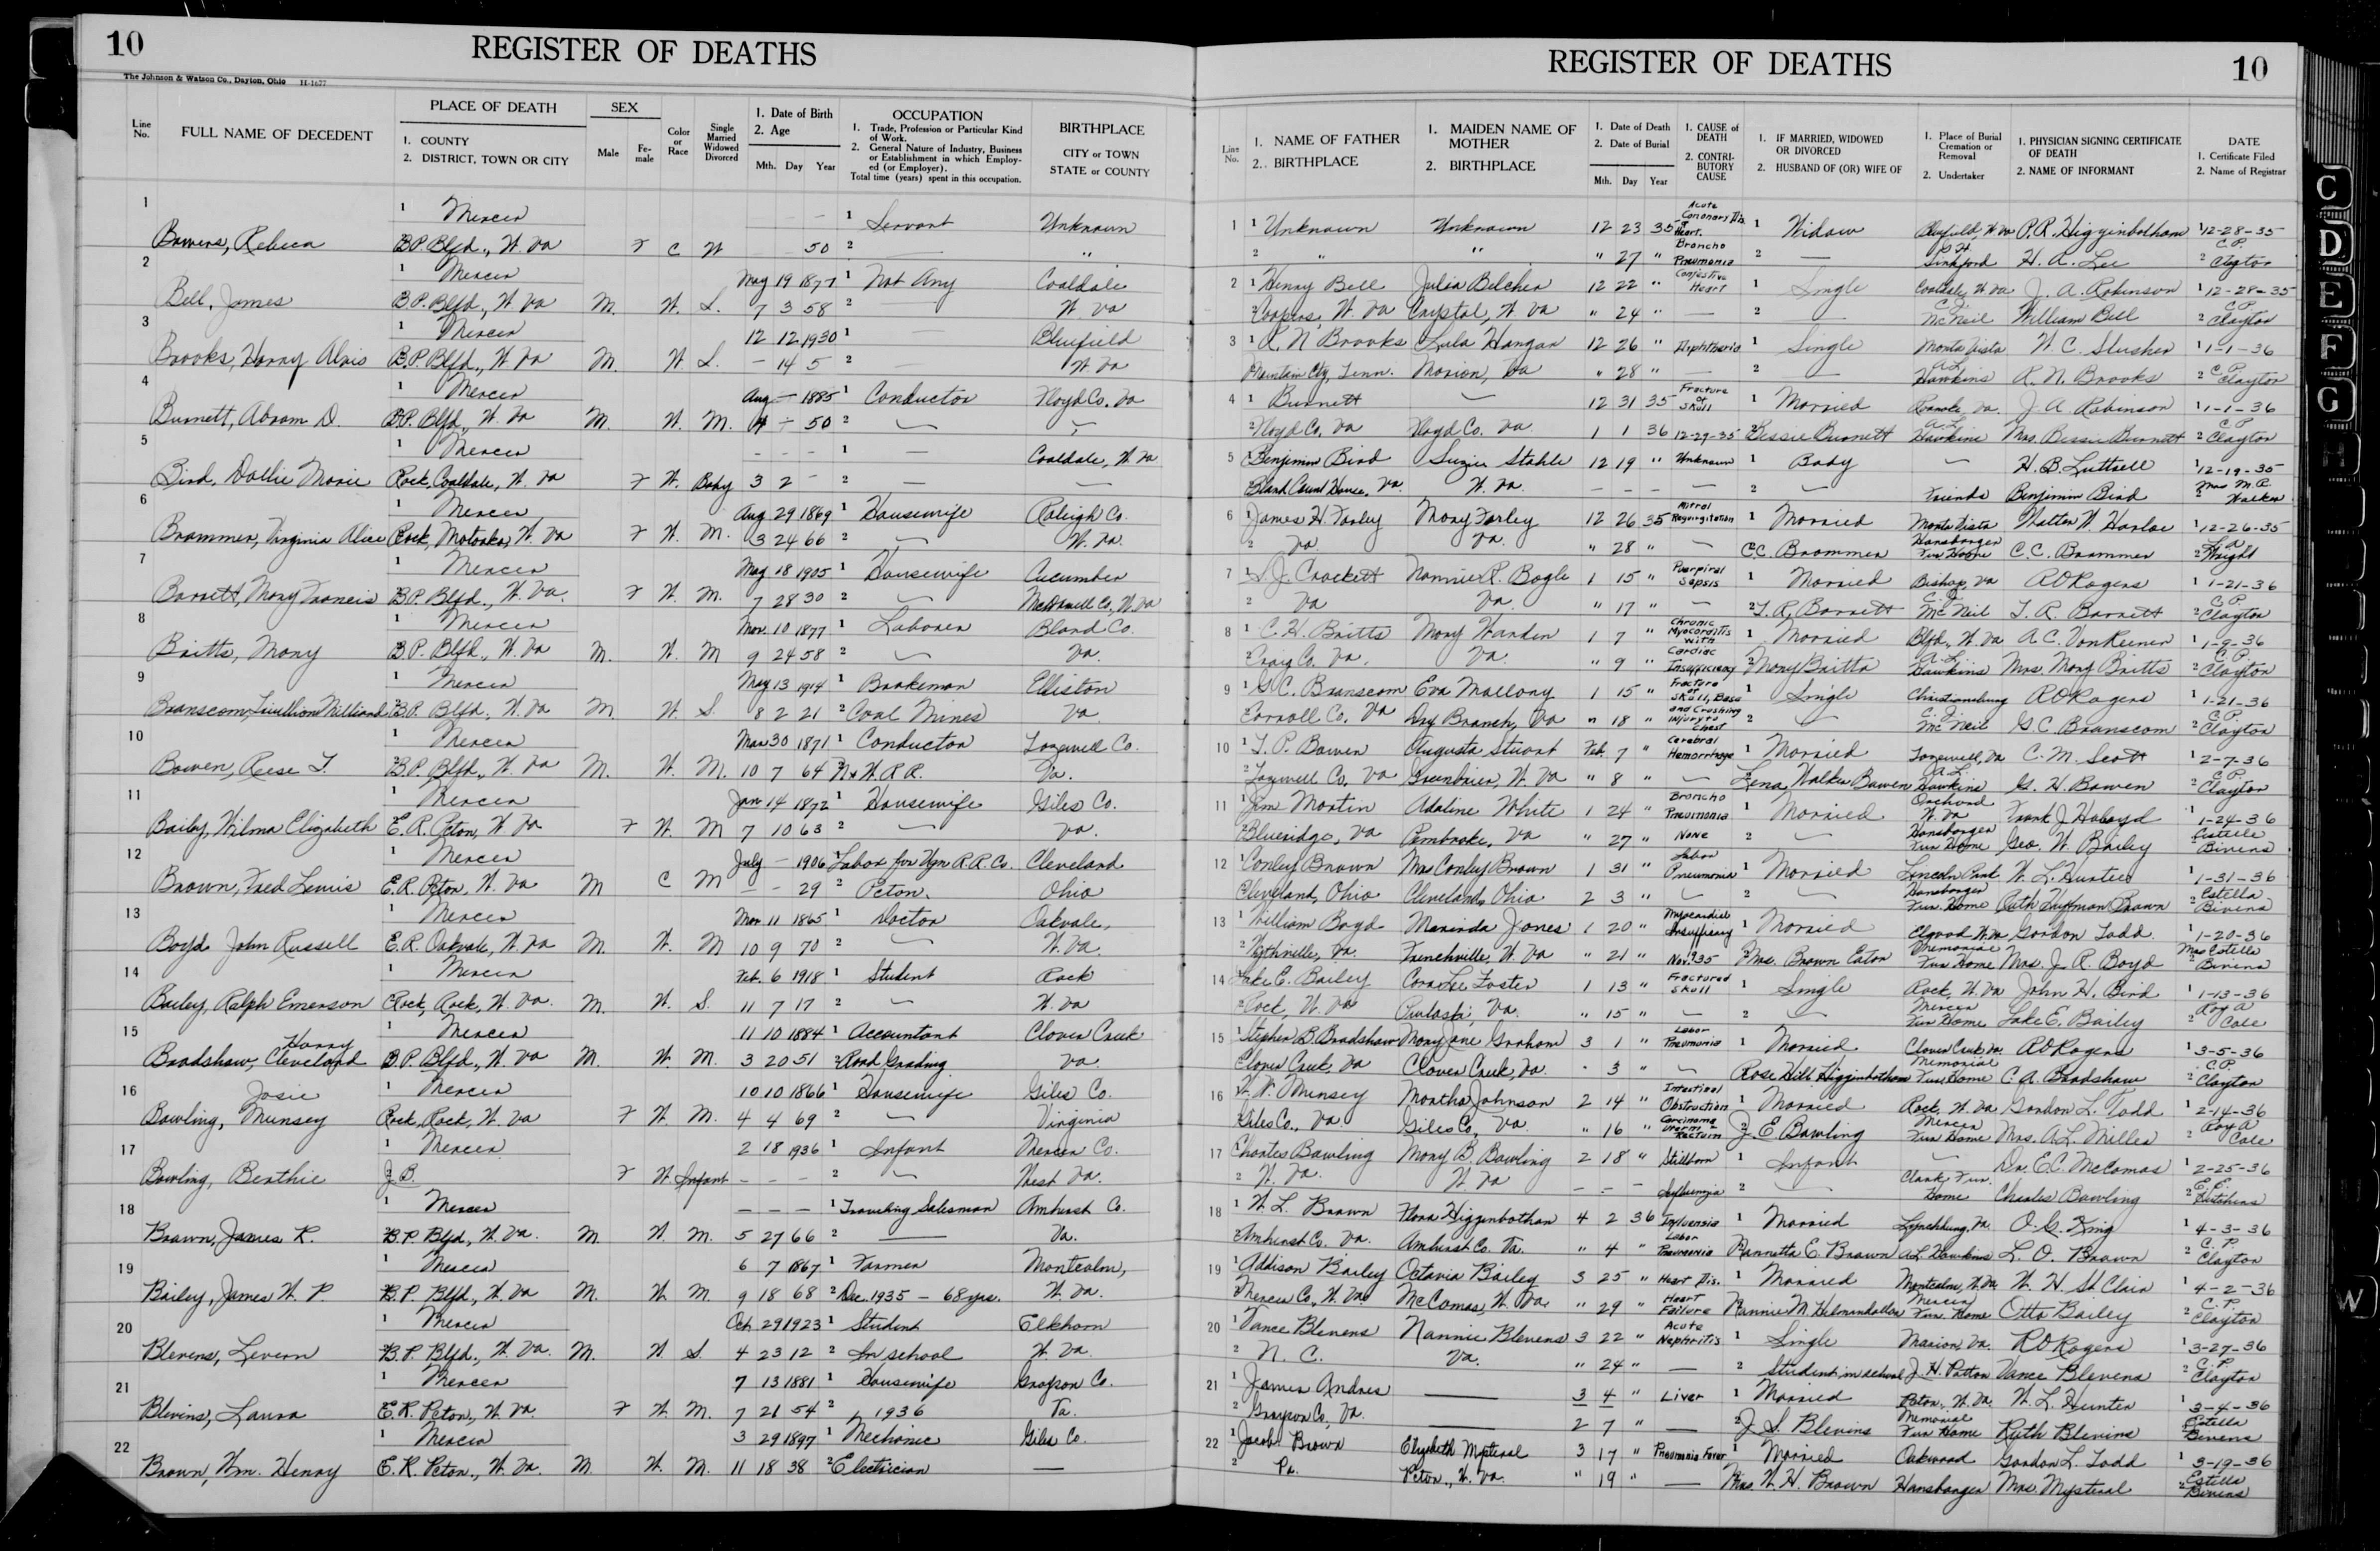 10
REGISTER OF DEATHS
The Johnson & Watson Co., Dayton, Ohio H-1677
Line No.
FULL NAME OF DECEDENT
PLACE OF DEATH
1. COUNTY
2. DISTRICT, TOWN OR CITY
SEX
Male
Female
Color or Race
Single Married Widowed Divorced
1. Date of Birth
2. Age
Mth. Day Year
OCCUPATION
1. Trade, Profession or Particular Kind of Work.
2. General Nature of Industry, Business or Establishment in which Employed (or Employer).
Total time (years) spent in this occupation.
BIRTHPLACE
CITY or TOWN
STATE or COUNTY
1 1 Mercer — 1 Servant Unknown
Bowers, Rebeca B.P. Blfd., W. Va F C W 50 2 — "
2 1 Mercer May 19 1877 1 Not Any Coaldale
Bell, James B.P. Blfd., W. Va M. W. S. 7 3 58 2 W. Va
3 1 Mercer 12 12 1930 1 — Bluefield
Brooks, Harry Alvis B.P. Blfd., W. Va M. W. S. — 14 5 2 W. Va
4 1 Mercer Aug — 1885 1 Conductor Floyd Co. Va
Burnett, Abram D. B.P. Blfd., W. Va M. W. M. 4 — 50 2 —
5 1 Mercer - - - 1 — Coaldale, W. Va
Bird, Dollie Marie Rock, Coaldale, W. Va F W. Baby 3 2 - 2 — —
6 1 Mercer Aug 29 1869 1 Housewife Raleigh Co.
Brammer, Virginia Alice Rock, Matoaka, W. Va F W. M. 3 24 66 2 — W. Va.
7 1 Mercer May 18 1905 1 Housewife Cucumber
Barrett, Mary Francis B.P. Blfd., W. Va. F W. M. 7 28 30 2 — McDowell Co., W. Va
8 1 Mercer Nov. 10 1877 1 Laborer Bland Co.
Britts, Mony B.P. Blfd., W. Va M. W. M 9 24 58 2 — Va.
9 1 Mercer May 13 1914 1 Brakeman Elliston
Branscom, Milliard B.P. Blfd., W. Va M W. S. 8 2 21 2 Coal Mines Va.
10 1 Mercer Mar 30 1871 1 Conductor Tazewell Co.
Bowen, Reese T. B.P. Blfd., W. Va M. W. M. 10 7 64 N & W. R R. Va.
11 1 Mercer Jan 14 1872 1 Housewife Giles Co.
Bailey, Wilma Elizabeth E.R. Pcton, W. Va F W. M 7 10 63 2 — Va.
12 1 Mercer July — 1906 1 Labor for Vgn R.R. Co. Cleveland
Brown, Fred Lewis E.R. Pcton, W. Va M C M — — 29 2 Pcton. Ohio
13 1 Mercer Mar 11 1865 1 Doctor Oakvale,
Boyd John Russell E.R. Oakvale, W. Va M. W. M 10 9 70 2 — W. Va.
14 1 Mercer Feb. 6 1918 1 Student Rock
Bailey, Ralph Emerson Rock, Rock, W. Va. M. W. S. 11 7 17 2 — W. Va
15 1 Mercer 11 10 1884 1 Accountant Clover Creek
Harry
Bradshaw, Cleveland B.P. Blfd., W. Va M. W. M. 3 20 51 2 Road Grading Va.
16 1 Mercer 10 10 1866 1 Housewife Giles Co.
Josie
Bowling, Munsey Rock, Rock, W. Va F W. M. 4 4 69 2 — Virginia
17 1 Mercer 2 18 1936 1 Infant Mercer Co.
Bowling, Berthie J.B. F W. Infant - - - 2 — West Va.
18 1 Mercer — — — 1 Traveling Salesman Amherst Co.
Brown, James R. B.P. Blfd., W. Va. M. W. M. 5 27 66 2 — Va.
19 1 Mercer 6 7 1867 1 Farmer Montcalm,
Bailey, James W. P. B.P. Blfd., W. Va M. W. M. 9 18 68 2 Dec. 1935 — 68 yrs. W. Va.
20 1 Mercer Oct 29 1923 1 Student Elkhorn
Blevens, Levern B.P. Blfd., W. Va. M. W S. 4 23 12 2 In school W. Va.
21 1 Mercer 7 13 1881 1 Housewife Grayson Co.
Blevins, Laura E.R. Pcton, W. Va. F W. M. 7 21 54 2 1936 Va.
22 1 Mercer 3 29 1897 1 Mechanic Giles Co.
Brown, Wm. Henry E.R. Pcton., W. Va. M. W. M. 11 18 38 2 Electrician —
REGISTER OF DEATHS
10
Line No.
1. NAME OF FATHER
2. BIRTHPLACE
1. MAIDEN NAME OF MOTHER
2. BIRTHPLACE
1. Date of Death
2. Date of Burial
Mth. Day Year
1. CAUSE of DEATH
2. CONTRIBUTORY CAUSE
1. IF MARRIED, WIDOWED OR DIVORCED
2. HUSBAND OF (OR) WIFE OF
1. Place of Burial Cremation or Removal
2. Undertaker
1. PHYSICIAN SIGNING CERTIFICATE OF DEATH
2. NAME OF INFORMANT
DATE
1. Certificate Filed
2. Name of Registrar
1 1 Unknown Unknown 12 23 35 Acute Coronary Dis. of Heart. 1 Widow Bluefield, W. Va P.R. Higginbotham 1 12-28-35
2 " " " 27 " Broncho Pneumonia 2 — Sinkford H. A. Lee 2 C.P. Clayton
2 1 Henry Bell Julia Belcher 12 22 " Conjestive Heart 1 Single Coaldale, W. Va J. A. Robinson 1 12-28-35
2 Coopers, W. Va Crystal, W. Va " 24 " — 2 — McNeil William Bell 2 C.P. Clayton
3 1 R. N Brooks Lula Hangar 12 26 " Diphtheria 1 Single Monta Vista W. C. Slusher 1 1-1-36
Mountain City, Tenn. Marion, Va " 28 " — 2 — A.L. Hawkins R. N. Brooks 2 C.P. Clayton
4 1 Burnett — 12 31 35 Fracture of Skull 1 Married Roanoke, Va. J. A Robinson 1 1-1-36
2 Floyd Co, Va Floyd Co. Va. 1 1 36 12-29-35 2 Bessie Burnett A.L. Hawkins Mrs. Bessie Burnett 2 C.P. Clayton
5 Benjimin Bird Suzie Stahle 12 19 " Unknown 1 Baby — H. B. Luttrell 1 12-19-35
Bland Court House, Va. W. Va. - - - — 2 — Friends Benjimin Bird 2 Mrs M.R. Walker
6 James H. Farley Mary Farley 12 26 35 Mitral Regurgitation 1 Married Monta Vista Walter W. Harloe 1 12-26-35
2 Va. Va. " 28 " — C.C. Brammer Hansbarger Fun Home C.C. Brammer 2 Wright
7 1 S.J. Crockett Nannie P. Bogle 1 15 " Puerpiral Sepsis 1 Married Bishop, Va R O Rogers 1 1-21-36
2 Va Va. " 17 " — 2 T. R. Barrett C.J. McNeil T. R. Barrett 2 C.P. Clayton
8 1 C. H. Britts Mary Harden 1 7 " Chronic Myocarditis with 1 Married Blfd., W. Va A.C. VanReenen 1 1-9-36
2 Craig Co. Va. Va. " 9 " Cardiac Insufficiency 2 Mony Britts A.L. Hawkins Mrs. Mony Britts 2 C.P. Clayton
9 1 G. C. Branscom Eva Mallory 1 15 " Fracture of Skull, Base 1 Single Christiansburg R O Rogers 1 1-21-36
2 Carroll Co. Va Dry Branch, Va " 18 " and Crushing injury to Chest 2 — C.J. McNeil G.C. Branscom 2 C.P. Clayton
10 1 T. P. Bowen Augusta Stuart Feb. 7 " Cerebral Hemorrhage 1 Married Tazewell, Va C. M. Scott 1 2-7-36
2 Tazewell Co. Va Greenbrier, W. Va " 8 " — 2 Lena Walker Bowen A.L. Hawkins G. H. Bowen 2 C.P. Clayton
11 1 Jim Martin Adaline White 1 24 " Broncho Pneumonia 1 Married Orchard W. Va Frank J Holroyd 1 1-24-36
2 Blueridge, Va Pembroke, Va " 27 " None 2 — Hansbarger Fun Home Geo. W. Bailey 2 Estelle Bivens
12 1 Conley Brown Mrs Conley Brown 1 31 " Lobar Pneumonia 1 Married Lincoln Park W. L. Hunter 1 1-31-36
Cleveland, Ohio Cleveland, Ohio 2 3 " — 2 — Hansbarger Fun. Home Ruth Huffman Brown 2 Estella Bivens
13 1 William Boyd Marinda Jones 1 20 " Myocardial Insuffiency 1 Married Elgood W. Va Gordon Todd. 1 1-20-36
2 Wytheville, Va. Frenchville, W. Va " 21 " Nov. 9 35 2 Mrs. Brown Eaton Memorial Fun Home Mrs. J. R. Boyd 2 Mrs Estella Bivens
14 1 Lake E. Bailey Cora Lee Foster 1 13 " Fractured Skull 1 Single Rock, W. Va John H. Bird 1 1-13-36
2 Rock, W. Va Pulaski, Va. " 15 " — 2 — Mercer Fun Home Lake E. Bailey 2 Roy A Cole
15 1 Stephen B. Bradshaw Mary Jane Graham 3 1 " Lobar Pneumonia 1 Married Clover Creek Va. R O Rogers 1 3-5-36
Clover Creek, Va Clover Creek, Va. " 3 " — Rose Hill Higginbotham Memorial Fun. Home C. A. Bradshaw 2 C.P. Clayton
16 W. W. Munsey Martha Johnson 2 14 " Intestinal Obstruction 1 Married Rock, W. Va Gordon L. Todd 1 2-14-36
2 Giles Co., Va. Giles Co., Va. " 16 " Carcinoma Rectum 2 J. E. Bowling Mercer Fun Home Mrs. A. L. Miller 2 Roy A Cole
17 Charles Bowling Mary B. Bowling 2 18 " Stillborn 1 Infant — Dr. E.C. McComas 1 2-25-36
2 W. Va. W. Va - - - Influenzia 2 — Clark Fun. Home Charles Bowling 2 E.E. Hutchens
18 1 W. L. Brown Flora Higginbothan 4 2 36 Influensia 1 Married Lynchburg, Va. O. G. King 1 4-3-36
2 Amherst Co. Va. Amherst Co. Va. " 4 " Lobar Pneumonia Rannetta E. Brown A.L. Hawkins L. O. Brown 2 C.P. Clayton
19 1 Addison Bailey Octavia Bailey 3 25 " Heart Dis. 1 Married Montcalm, W. Va. W. H. St. Clair 1 4-2-36
2 Mercer Co., W. Va. McComas, W. Va. " 29 " Heart Failure Nannie M. Mercer Fun. Home Otto Bailey 2 C.P. Clayton
20 1 Vance Blevens Nannie Blevens 3 22 " Acute Nephritis 1 Single Marion, Va. R O Rogers 1 3-27-36
2 N. C. Va. " 24 " — 2 Student in school J. H. Patton Vance Blevens 2 C.P. Clayton
21 1 James Andres — 3 4 " Liver 1 Married Pcton, W. Va. W. L. Hunter 1 3-4-36
2 Grayson Co., Va. — 2 7 " — 2 J. S. Blevins Memorial Fun Home Ruth Blevins 2 Estella Bivens
22 1 Jacob Brown Elizabeth Mysteral 3 17 " Pneumonia Fever 1 Married Oakwood Gordon L. Todd 1 3-19-36
2 Pa. Pcton., W. Va. " 19 " — Mrs. W. H. Brown Hansbarger Mrs. Mysteral 2 Estella Bivens
C
D
E
F
G
H
I
W